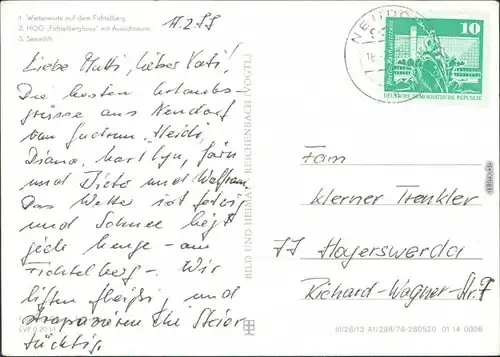 1. Wetterwarte auf dem Fichtelberg
2. HOG „Fichtelberghaus" mit Aussichtsturm
3. Sessellift
Liebe Mutti, lieber Vati!
Die besten Urlaubs-
grüsse aus Neudorf
von Gudrun, Heidi,
Diana, Karl Lyn, Jörn
und Dieto und Wolfram.
Das Wetter ist
und Schnee liegt
jede Menge - am
Fichtelberg -. Wir
liften fleißig und
die Skier
tüchtig.
BILD UND HEIMAT REICHENBACH (VOGTL)
NEUDO
10
DEUTSCHE DEMOKRATISCHE REPUBLIK
Fam
Werner Trenkler
77 Hoyerswerda
Richard-Wagner-Str. 7
III/26/13 A1/298/76-280520 01 14 0006